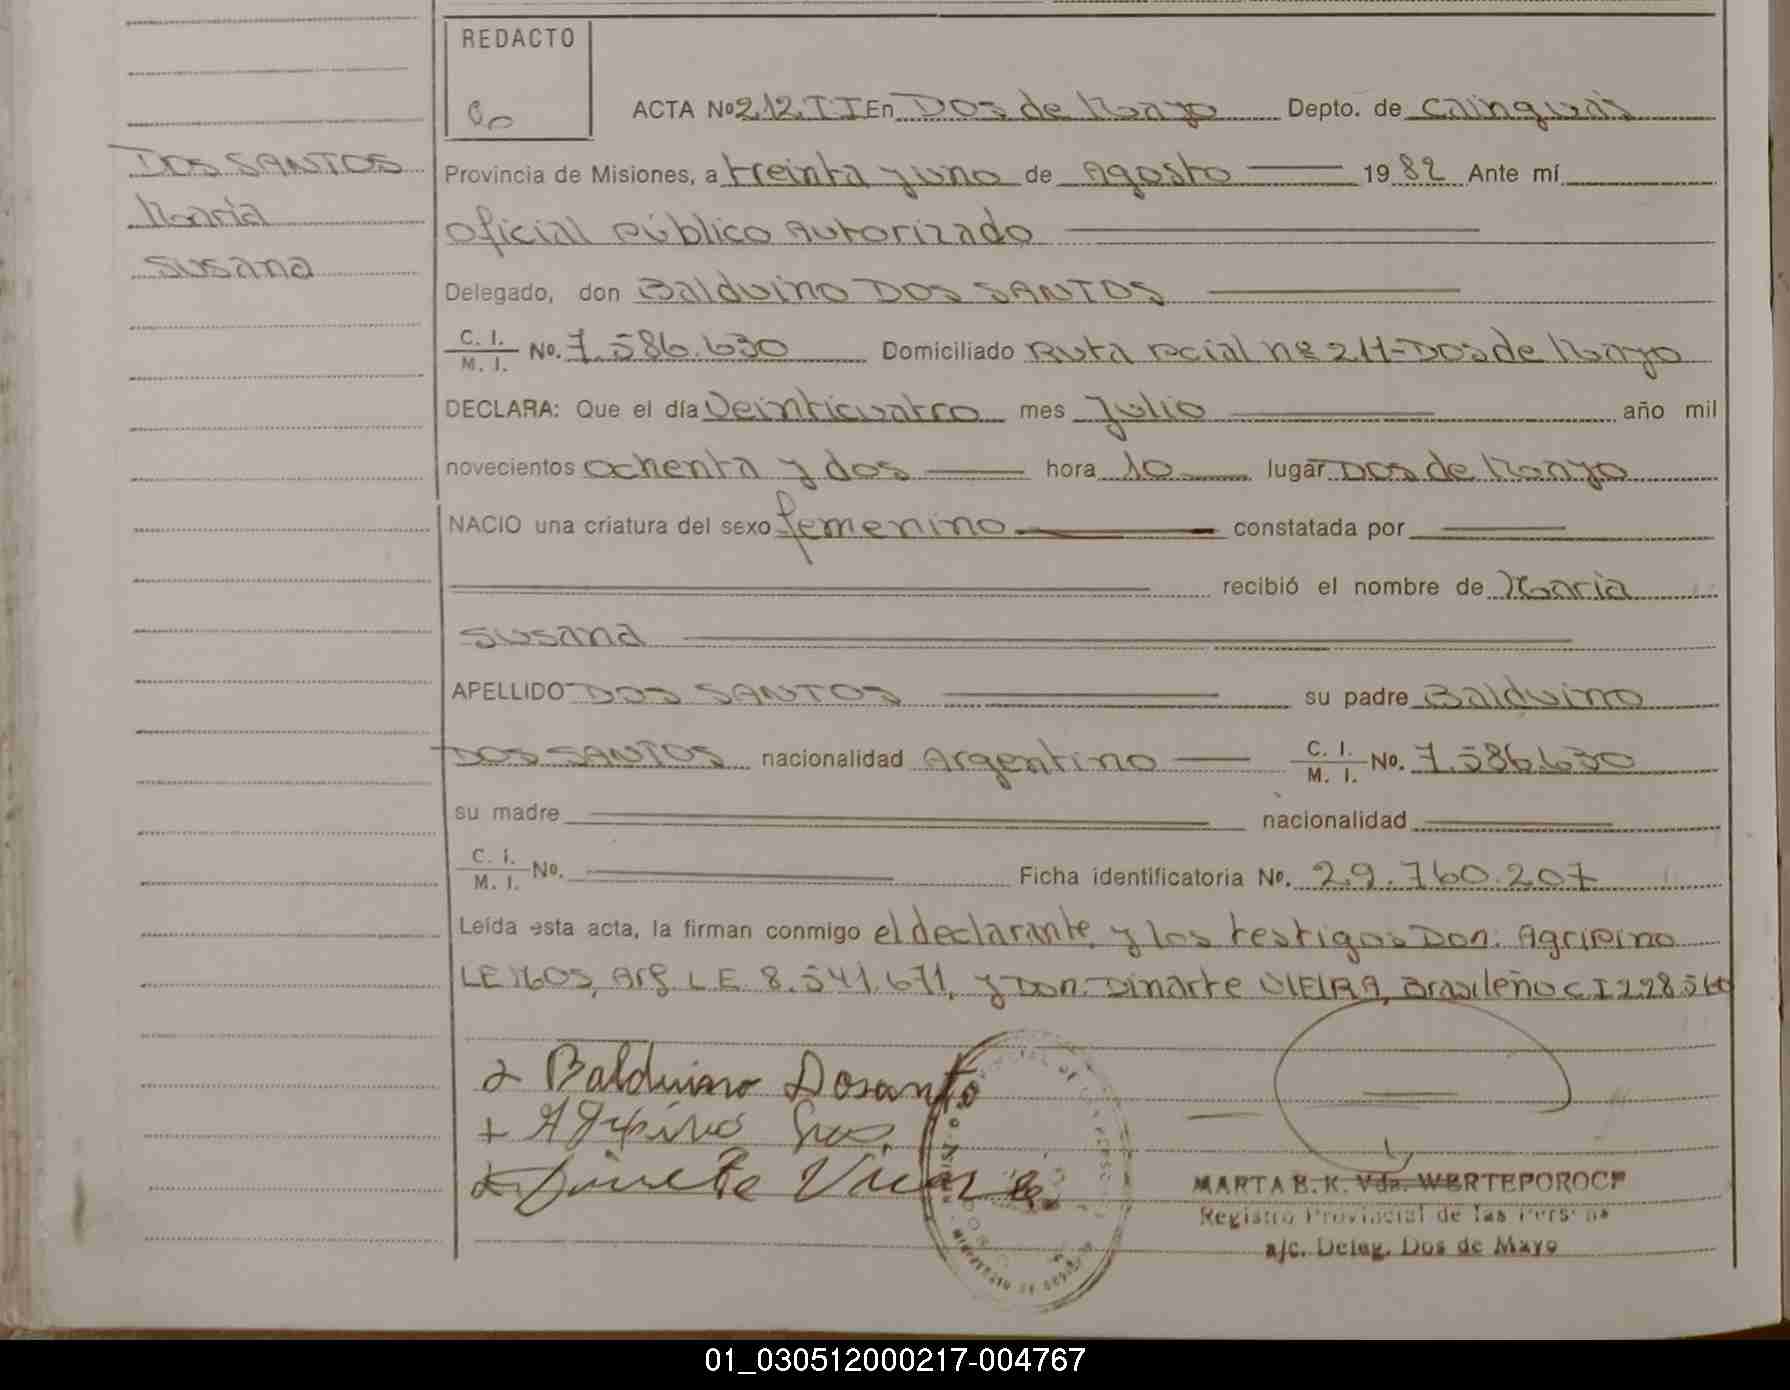 REDACTO
ACTA Nº 212 TI En Dos de Mayo Depto. de Cainguás
DOS SANTOS
María
Susana
Provincia de Misiones, a treinta y uno de Agosto 1982 Ante mí
oficial público Autorizado
Delegado, don Balduino DOS SANTOS
C. I. / M. I. No. 7.586.630 Domiciliado Ruta pcial nº 211-Dos de Mayo
DECLARA: Que el día Veinticuatro mes Julio año mil
novecientos ochenta y dos hora 10 lugar Dos de Mayo
NACIO una criatura del sexo femenino constatada por
recibió el nombre de María
Susana
APELLIDO DOS SANTOS su padre Balduino
DOS SANTOS nacionalidad Argentino C. I. / M. I. No. 7.586.630
su madre nacionalidad
C. I. / M. I. No. Ficha identificatoria No. 29.760.207
Leída esta acta, la firman conmigo el declarante y los testigos Don: Agripino
LEMOS, Arg. L.E. 8.541.671, y Don: Dinarte VIEIRA, Brasileño C I 228.560
Balduino Dosanto
MARTA B. K. Vda. WERTEPOROCH
Registro Provincial de las Personas
a/c. Deleg. Dos de Mayo
01_030512000217-004767